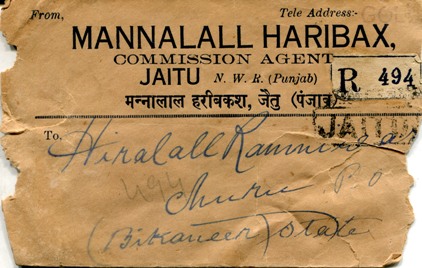 From, Tele Address:-
MANNALALL HARIBAX,
COMMISSION AGENT
JAITU N. W. R. (Punjab)
R 494
मन्नालाल हरीबकश, जैतु (पंजाब)
JAITU
To,
Hiralall
494
Churu P.O
(Bikaneer) State